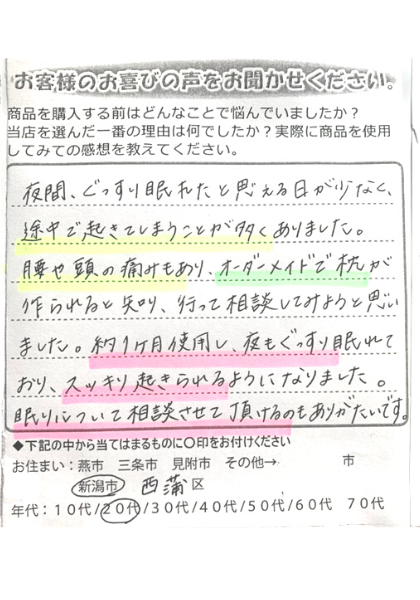 お客様のお喜びの声をお聞かせください。
商品を購入する前はどんなことで悩んでいましたか?
当店を選んだ一番の理由は何でしたか?実際に商品を使用
してみての感想を教えてください。
夜間、ぐっすり眠れたと思える日が少なく、
途中で起きてしまうことが多くありました。
腰や頭の痛みもあり、オーダーメイドで枕が
作られると知り、行って相談してみようと思い
ました。約1ヶ月使用し、夜もぐっすり眠れて
おり、スッキリ起きられるようになりました。
眠りについて相談させて頂けるのもありがたいです。
◆下記の中から当てはまるものに○印をお付けください
お住まい:燕市 三条市 見附市 その他→ 市
新潟市 西蒲区
年代:10代/20代/30代/40代/50代/60代 70代